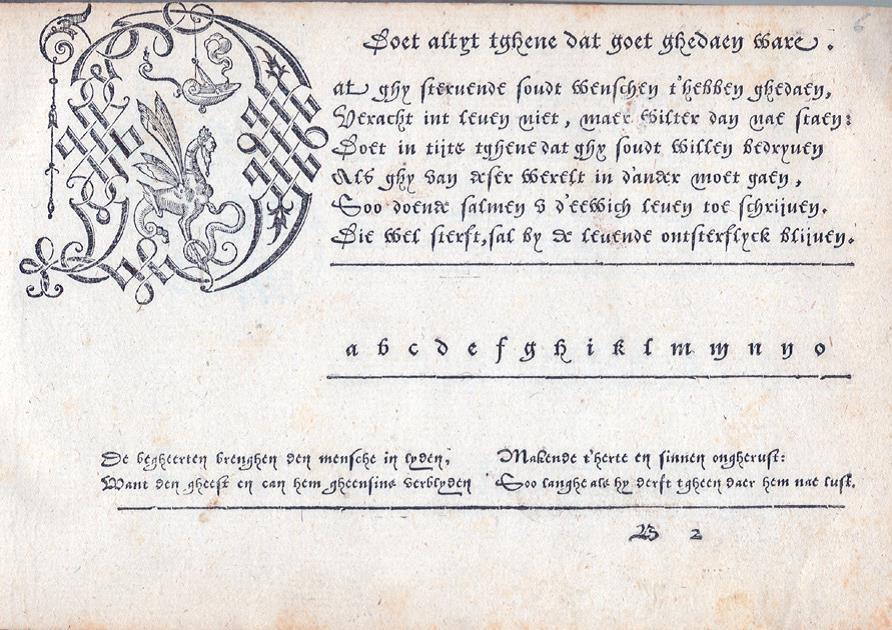 Doet altyt tghene dat goet ghedaen ware.
Dat ghy stervende soudt wenschen t'hebben ghedaen,
Veracht int leven niet, maer wilter dan nae staen:
Doet in tijts tghene dat ghy soudt willen bedryven
Als ghy van deser werelt in d'ander moet gaen,
Soo doende salmen v d'eewich leven toe schrijven.
Die wel sterft, sal by de levende ontsterflyck blijven.
a b c d e f g h i k l m m n n o
De begheerten brenghen den mensche in lyden, Makende t'herte en sinnen ongherust:
Want den gheest en can hem gheensins verblyden Soo langhe als hy derft tgheen daer hem nae lust.
B 2
6